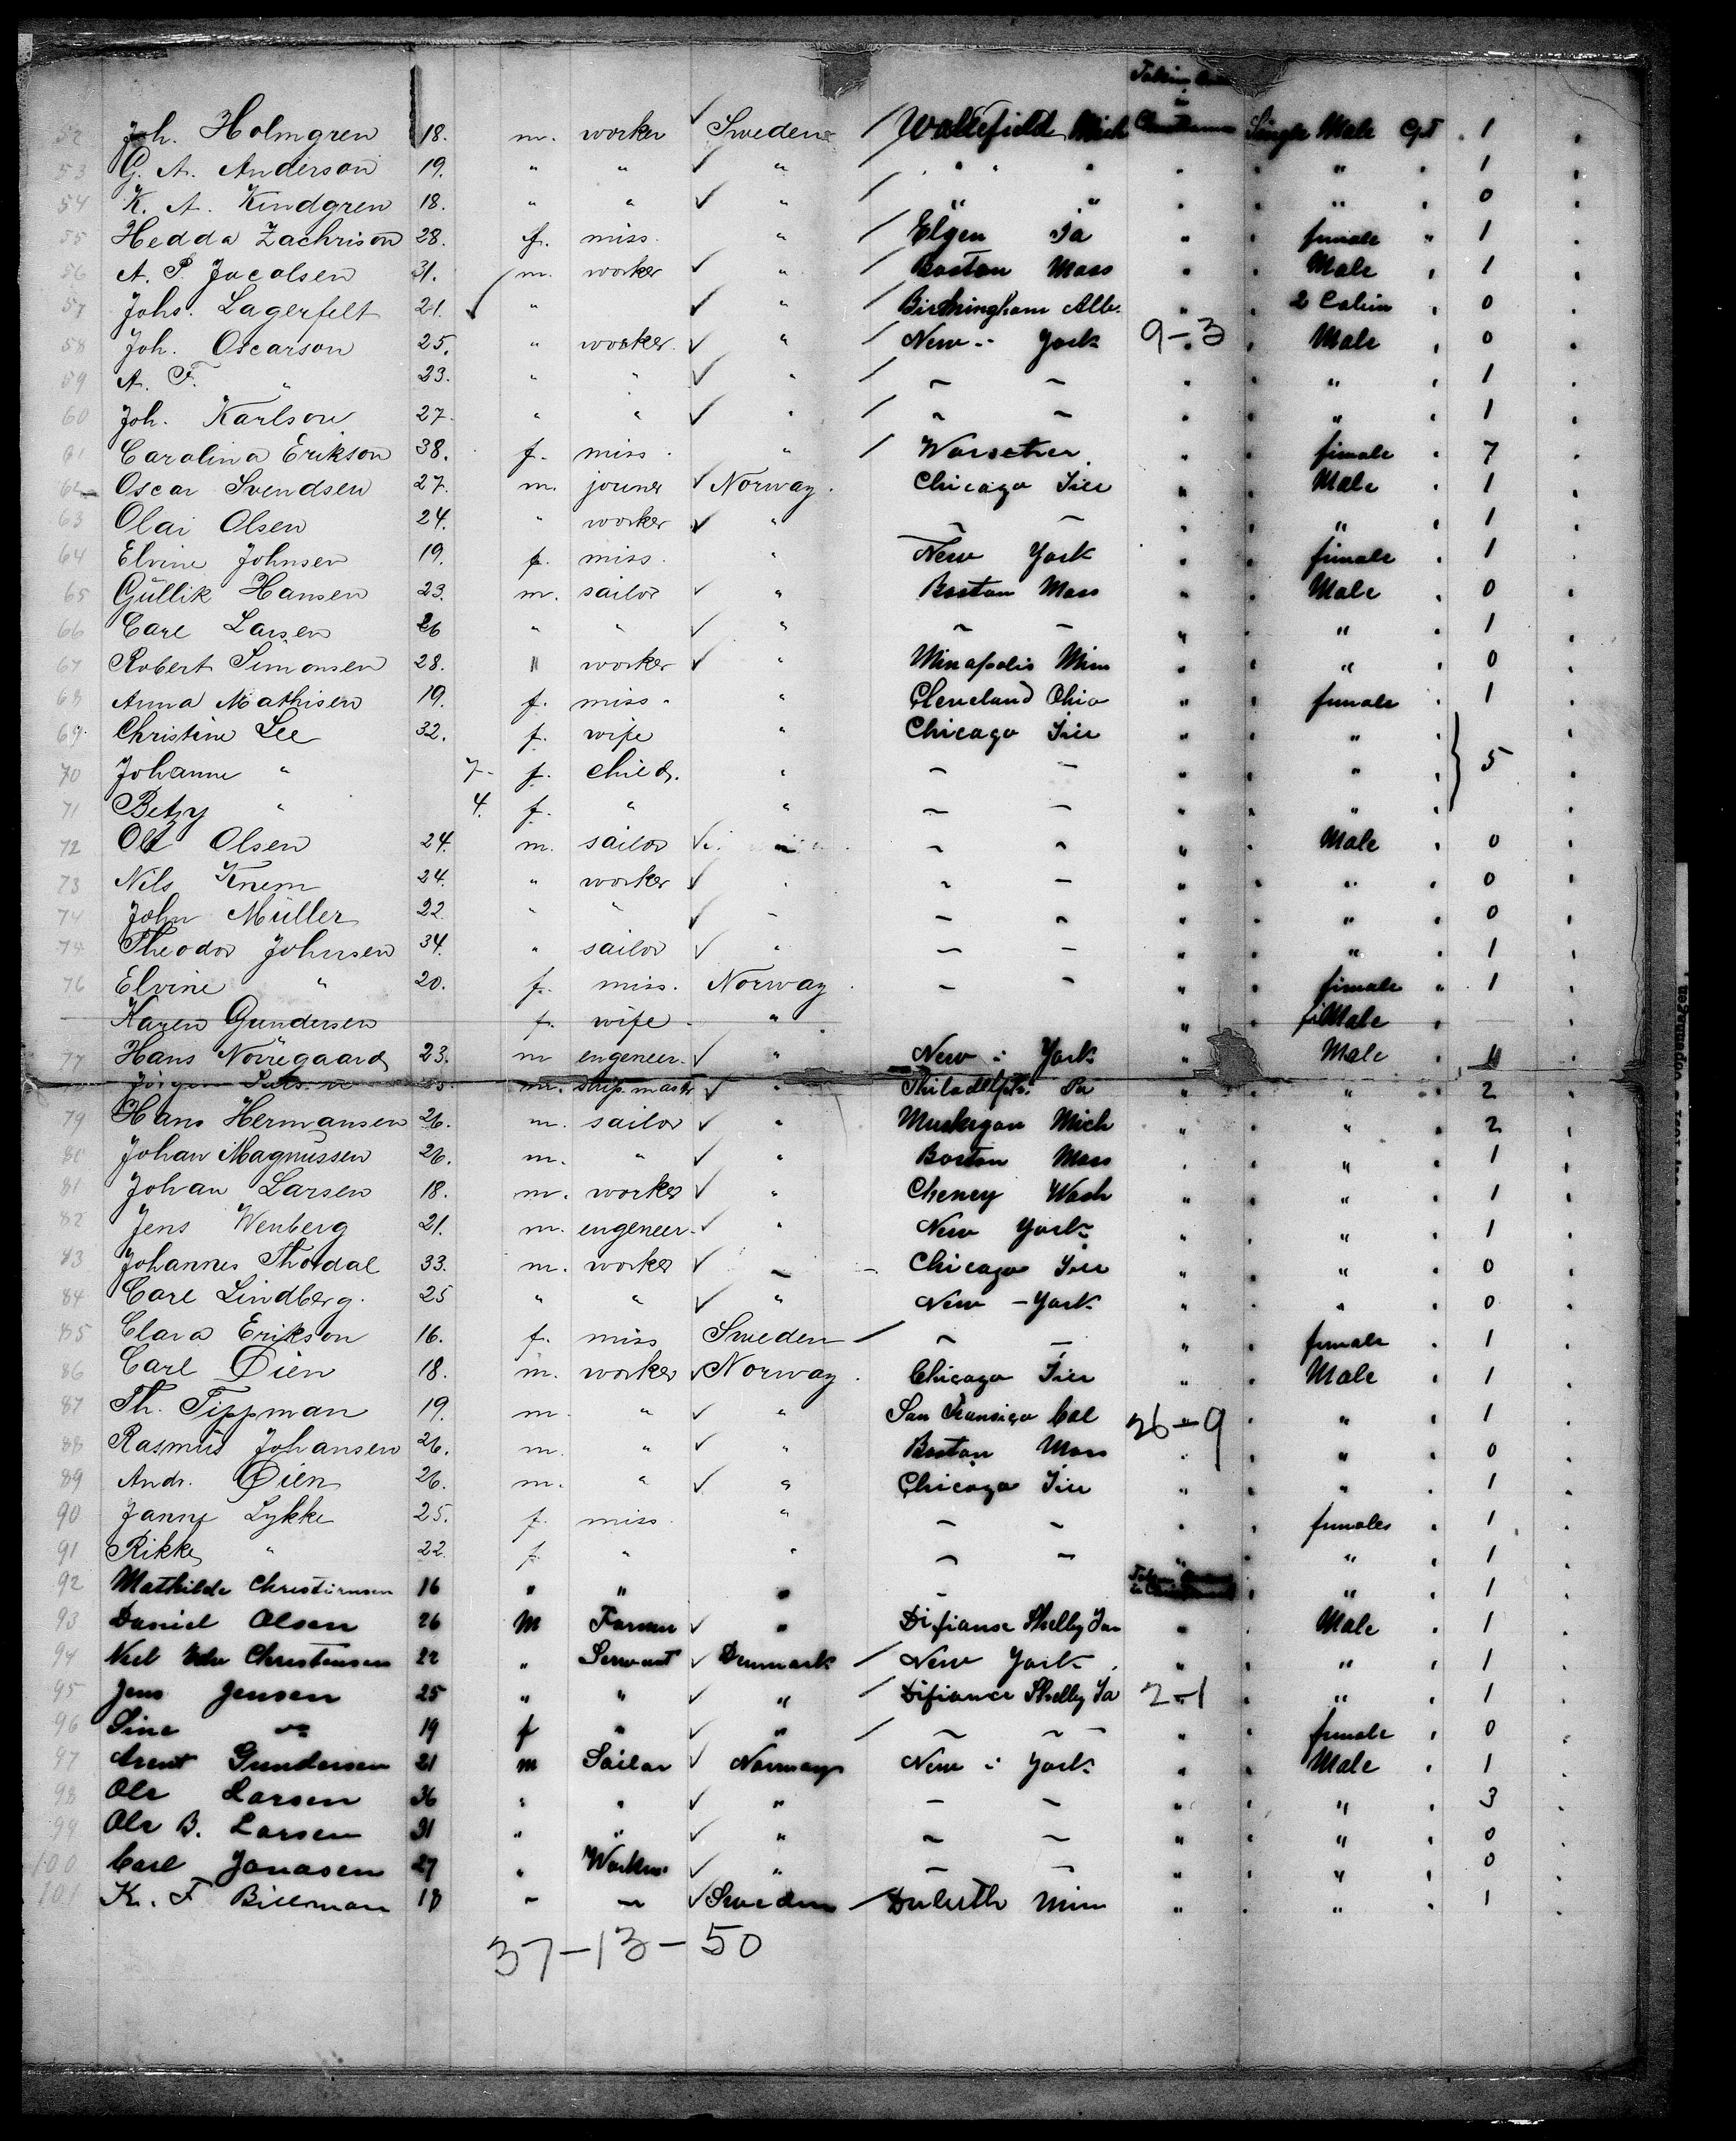 52 Joh. Holmgren 18. m. worker Sweden / Wakefield Mich Single Male 1
53 G. A. Anderson 19. " " ✓ " / " " " " 1
54 K. A. Kindgren 18. " " ✓ " / " " " " 0
55 Hedda Zachrison 28. f. miss. " / Elgen Ia " female " 1
56 A. P. Jacolsen 31. m. worker ✓ " / Boston Mass " Male " 1
57 Johs. Lagerfelt 21. ✓ " ✓ " / Birmingham Alb. " 2 Cabin " 0
58 Joh. Oscarson 25. " worker ✓ " / New - York 9-3 " Male " 0
59 A. F. " 23. " " ✓ " / — — " " " 1
60 Joh. Karlson 27. " " ✓ " / — — " " " 1
61 Carolina Erikson 38. f. miss. " / Worsether " fimale " 7
62 Oscar Svendsen 27. m. joiner ✓ Norway. Chicago Ille " Male " 1
63 Olai Olsen 24. " worker ✓ " — — " " " 1
64 Elvine Johnsen 19. f. miss. " New York " fimale " 1
65 Gullik Hansen 23. m. sailor ✓ " Boston Mass " Male " 0
66 Carl Larsen 26 " " ✓ " — — " " " 1
67 Robert Simonsen 28. " worker ✓ " Minapolis Min " " " 0
68 Anna Mathisen 19. f. miss. " Cleveland Ohio " female " 1
69. Christine Lee 32. f. wife " Chicago Ille " " "
70 Johanne " 7- f. child. " — — " " " } 5
71 Betzy " 4. f. " " — — " " "
72 Olf Olsen 24. m. sailor ✓ " — — " Male " 0
73 Nils Knem 24. " worker ✓ " — — " " " 0
74 John Müller 22. " " ✓ - — — " " " 0
74 Theodor Johnsen 34. " sailor ✓ " — — " " " 1
76 Elvine " 20. f. miss. Norway — — " fimale " 1
Karen Gundersen f. wife " " fiMale "
77 Hans Norregaard 23. m engeneer. ✓ " New - York " Male " 11
m. ship master ✓ Philadelphi. Pa " " " 2
79 Hans Hermansen 26. m. sailor ✓ " Muskegon Mich " " " 2
80 Johan Magnussen 26. m. " ✓ " Boston Mass " " " 1
81 Johan Larsen 18. m. worker ✓ " Cheney Wash " " " 1
82 Jens Wenberg 21. m. engeneer. ✓ " New York " " " 1
83 Johannes Thordal 33. m. worker ✓ — Chicago Ille " " " 0
84 Carl Lindberg. 25 " " ✓ " New - York " " " 0
85 Clara Erikson 16. f. miss Sweden / — — " female " 1
86 Carl Öien 18. m. worker ✓ Norway. Chicago Ille " Male " 1
87 Th. Tippman 19. m. " ✓ " San Fransisco Cal 26-9 " " 1
88 Rasmus Johansen 26. m. " ✓ " Boston Mass " " " 0
89 Andr. Öien 26. m. " ✓ " Chicago Ille " " " 1
90 Janny Lykke 25. f. miss. " — — " females " 1
91 Rikke " 22. f. " " — — " " " 1
92 Mathilde Christiansen 16 " " " — " " 1
93 Daniel Olsen 26 M Farmer ✓ " Difianse Shelby Ia " Male " 1
94 Christensen 22 " Servant ✓ Denmark / New York " " " 1
95 Jens Jensen 25 " " ✓ " / Difiance Shelby Ia 2-1 " " 1
96 Sine do 19 f " ✓ " / — — " female " 0
97 Arent Gundersen 21 m Sailor ✓ Norway New - York " Male " 1
98 Ole Larsen 36 " " ✓ " — — " " " 3
99 Ole B. Larsen 31 " " ✓ " — — " " " 0
100 Carl Jonasen 27 " Worker ✓ " — — " " " 0
101 K. F Billman 18 — — ✓ Sweden / Duluth Min " " " 1
37-13-50